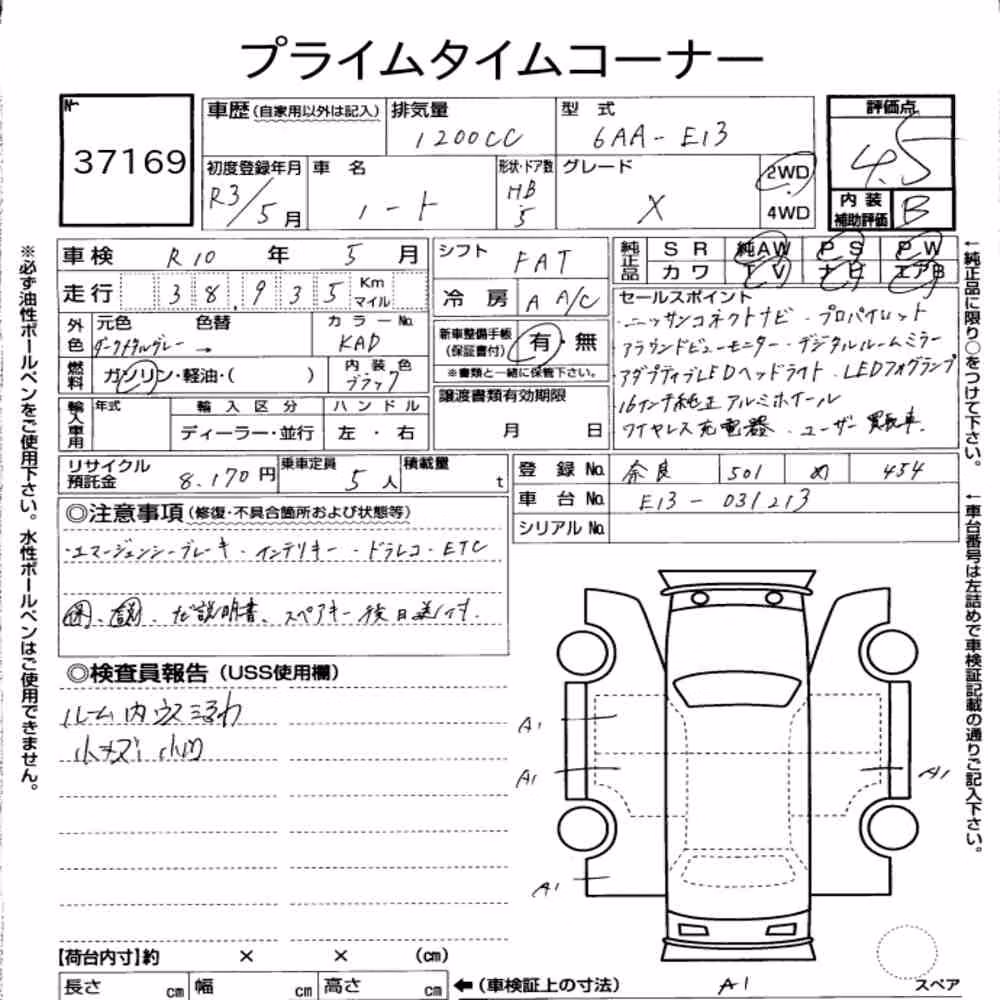 プライムタイムコーナー
№
37169
車歴(自家用以外は記入)
排気量
1200CC
型式
6AA-E13
評価点
4.5
初度登録年月
R3/5月
車名
ノート
形状・ドア数
HB
5
グレード
X
2WD
4WD
内装
補助評価
B
車検 R10 年 5 月
走行 38,935 Km マイル
外色
元色
色替
ダークメタルグレー →
カラーNo.
KAD
燃料
ガソリン・軽油・( )
内装色
ブラック
輸入車用
年式
輸入区分
ディーラー・並行
ハンドル
左・右
シフト
FAT
冷房
A A/C
新車整備手帳
(保証書付)
有・無
※書類と一緒に保管下さい。
譲渡書類有効期限
月 日
純正品
SR 純AW PS PW
カワ TV ナビ エアB
セールスポイント
・ニッサンコネクトナビ・プロパイロット
アラウンドビューモニター・デジタルルームミラー
アダプティブLEDヘッドライト・LEDフォグランプ
16インチ純正アルミホイール
ワイヤレス充電器・ユーザー買取車.
リサイクル預託金
8,170円
乗車定員
5人
積載量
t
登録No.
奈良 501 め 454
車台No.
E13-031213
シリアルNo.
◎注意事項(修復・不具合箇所および状態等)
・エマージェンシーブレーキ・インテリキー・ドラレコ・ETC
ナビ説明書、スペアキー後日送付.
◎検査員報告(USS使用欄)
ルーム内ウス
小キズ 小凹
A1
A1
A1
A1
A1
【荷台内寸】約 × × (cm)
長さ cm 幅 cm 高さ cm
←(車検証上の寸法)
スペア
※必ず油性ボールペンをご使用下さい。水性ボールペンはご使用できません。
←純正品に限り○をつけて下さい。
←車台番号は左詰めで車検証記載の通りご記入下さい。